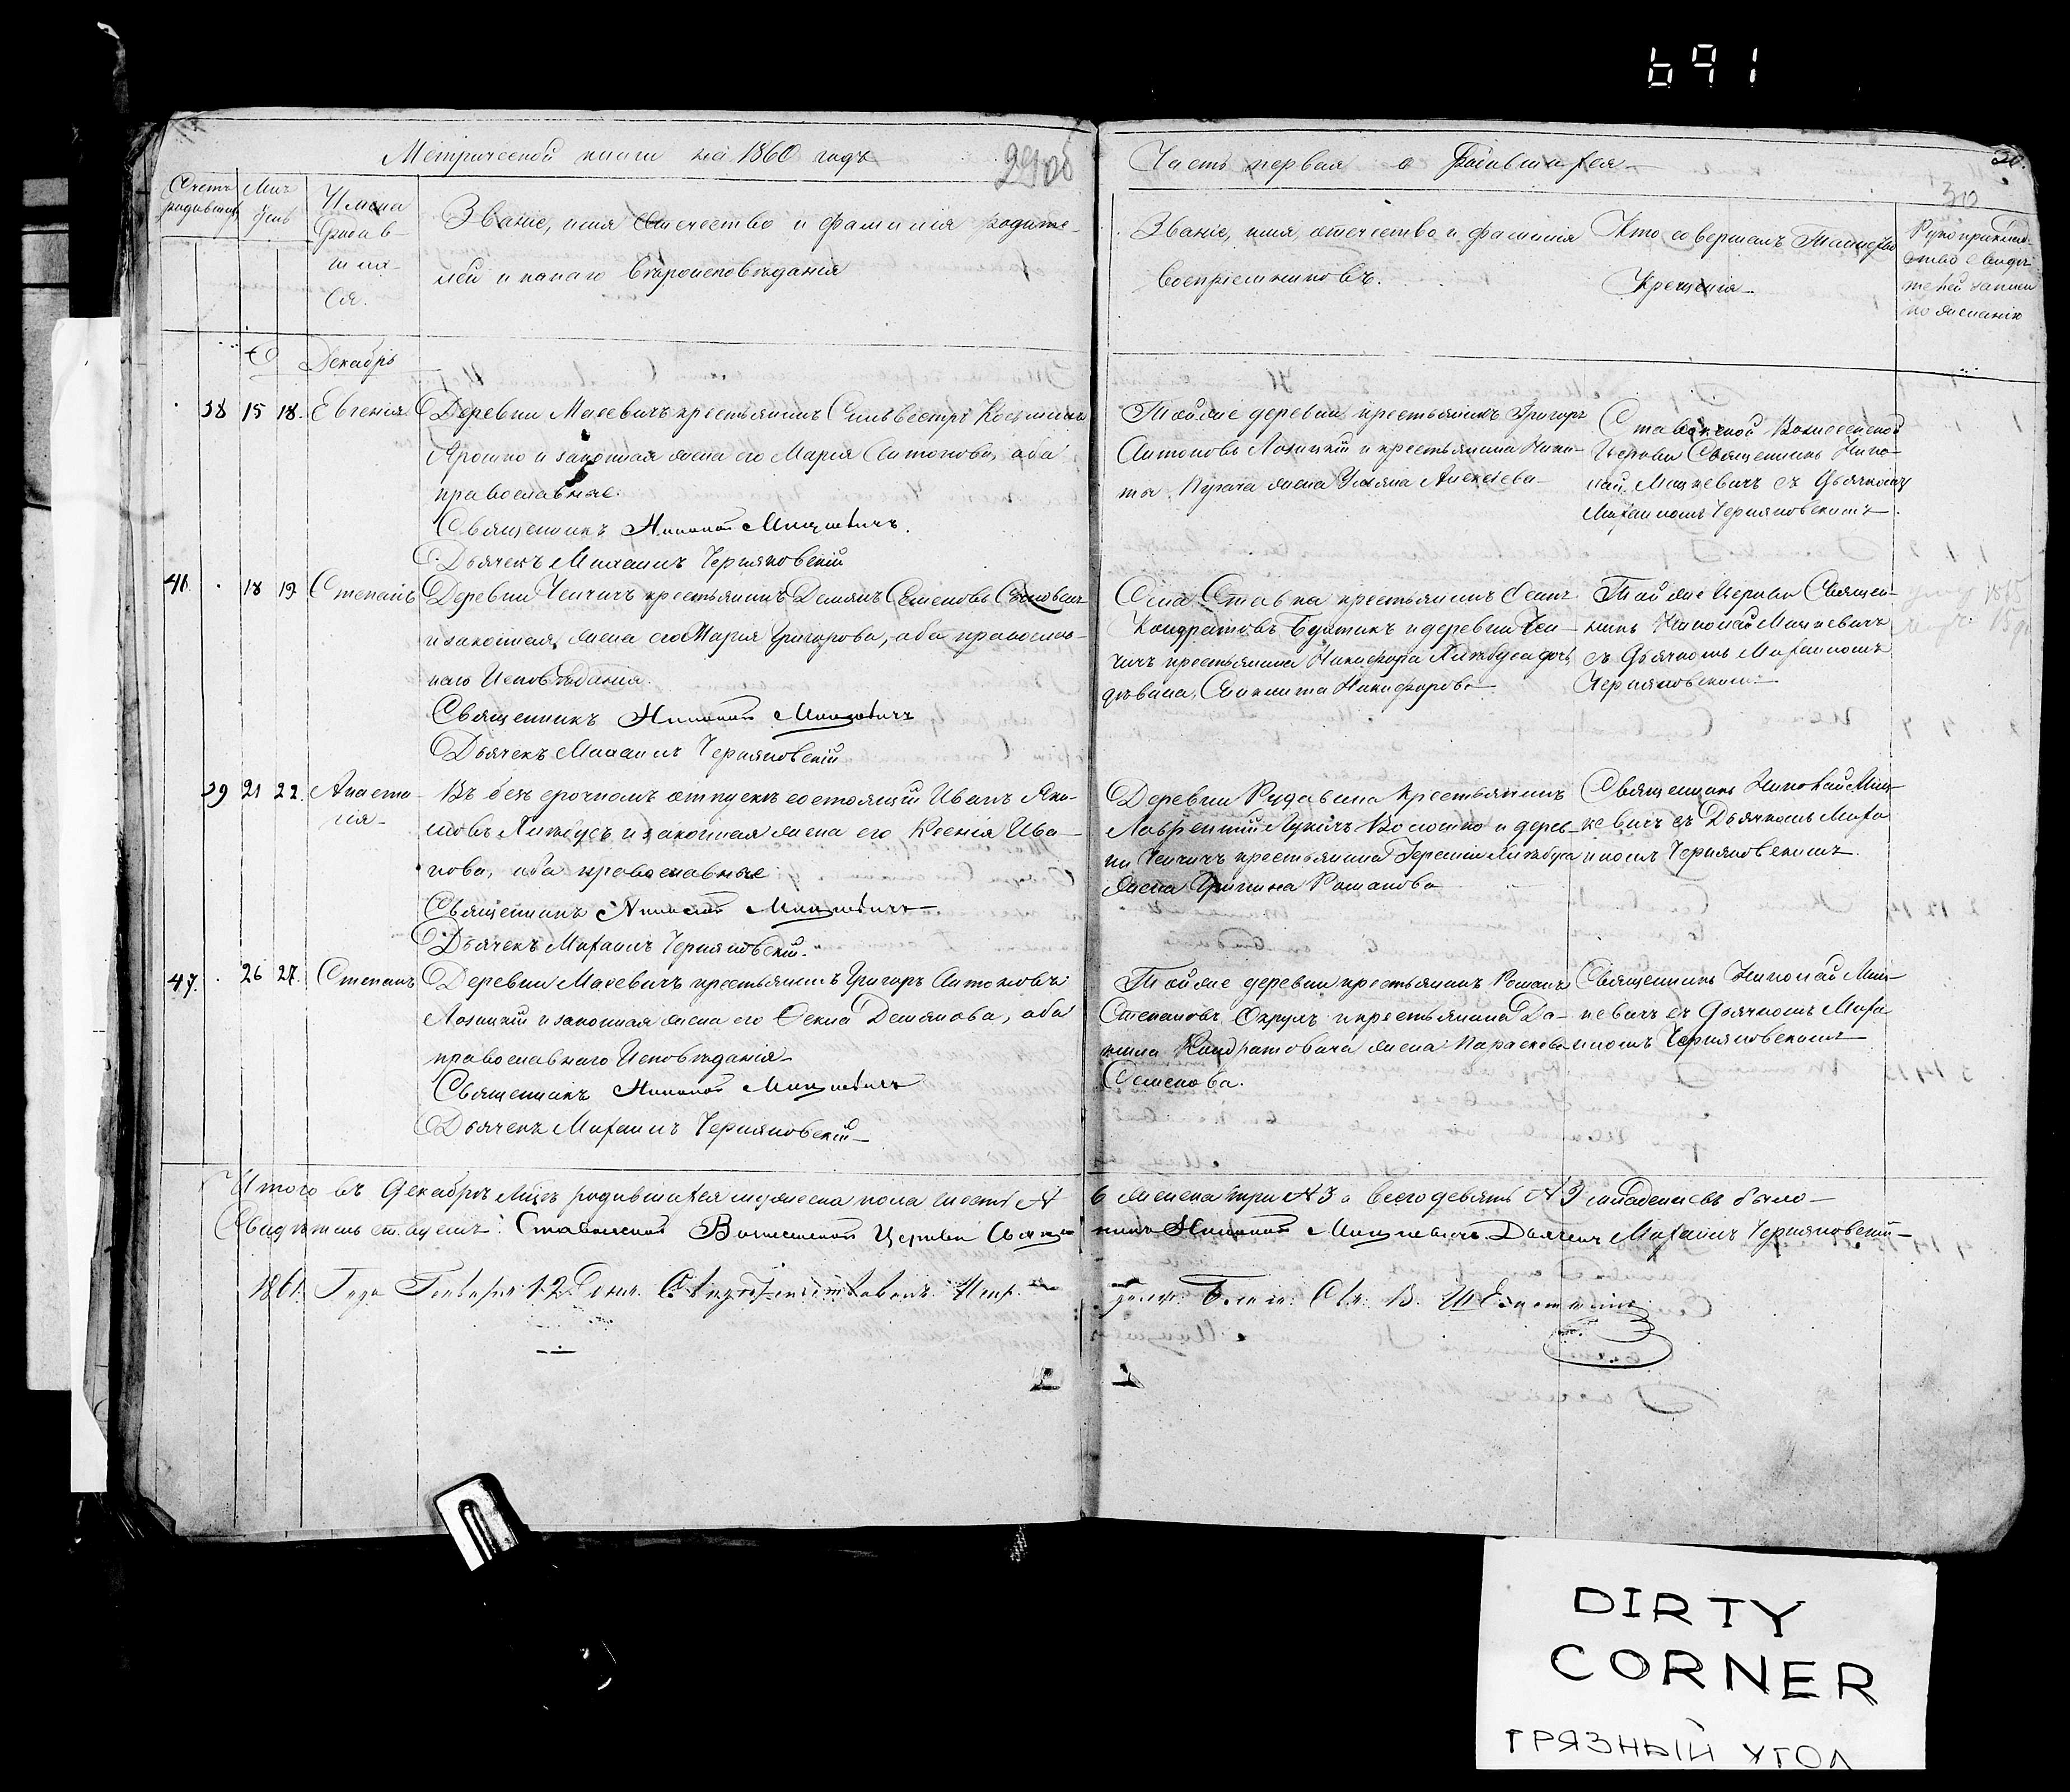 691
Метрической книги на 1860 годъ
29об
Часть первая о родившихся
30.
30
Счетъ родивших.
Мцъ день
Имена родившихся.
Званіе, имя отечество и фамилія родите-
лей и какаго Вѣроисповѣданія
Званіе, имя, отечество и фамилія
Воспріемниковъ.
Кто совершалъ Таинство
Крещенія
Рукоприклад-
ство свидѣ
телей записи
по желанію
Декабрь
38 15 18. Евгенія
Деревни Масевичъ крестьянинъ Сильвестръ Косьминъ
Ярошко и законная жена его Марія Антонова, оба
православные.
Священникъ Николай Мицкевичъ.
Дьячекъ Михаилъ Черняковскій
Тойже деревни крестьянинъ Григоръ
Антоновъ Лозицкій и крестьянина Ники-
ты жена Ульяна Алексѣева
Ставокской Вознесенской
Церкви Священникъ Нико-
лай Мицкевичъ съ Дьячкомъ
Михаиломъ Черняковскимъ.
46 18 19 Степанъ
Деревни Чепичъ крестьянинъ Демянъ Семеновъ
и законная жена его Марія Григорова, оба православ-
наго Исповѣданія.
Священникъ Николай Мицкевичъ
Дьячекъ Михаилъ Черняковскій
Села Ставка крестьянинъ
Кондратовъ и деревни Че-
пичъ крестьянина Никифора дочь
дѣвица, Никифорова
Тойже Церкви Священ-
никъ Николай Мицкевичъ
съ Дьячкомъ Михаиломъ
Черняковскимъ
39 21 22. Анаста-
сія
Въ безсрочномъ отпускѣ состоящій Иванъ Яки-
мовъ и законная жена его Ксенія Ива-
нова, оба православные
Священникъ Николай Мицкевичъ
Дьячекъ Михаилъ Черняковскій.
Деревни крестьянинъ
Лаврентій Лукичъ Волошко и дерев-
ни Чепичъ крестьянина
жена Романова
Священникъ Николай Миц-
кевичъ съ Дьячкомъ Миха
иломъ Черняковскимъ.
47. 26 27. Степанъ
Деревни Масевичъ крестьянинъ Григоръ Антоновъ
Лозицкій и законная жена его Ѳекла Демянова, оба
православнаго Исповѣданія
Священникъ Николай Мицкевичъ
Дьячекъ Михаилъ Черняковскій
Тойже деревни крестьянинъ Романъ
Степановъ и крестьянина Да-
нила Кондратовича жена Параскева
Семенова.
Священникъ Николай Миц-
кевичъ съ Дьячкомъ Миха
иломъ Черняковскимъ
Итого въ Декабрѣ Мцѣ родившихся мужеска пола шесть № 6 женска три № 3 а всего девять № 9 младенцевъ было
Свидѣтельствуемъ: Ставокской Вознесенской Церкви Священникъ Николай Мицкевичъ Дьячекъ Михаилъ Черняковскій
1861. Года Генваря 12 Дня.
DIRTY
CORNER
ГРЯЗНЫЙ УГОЛ